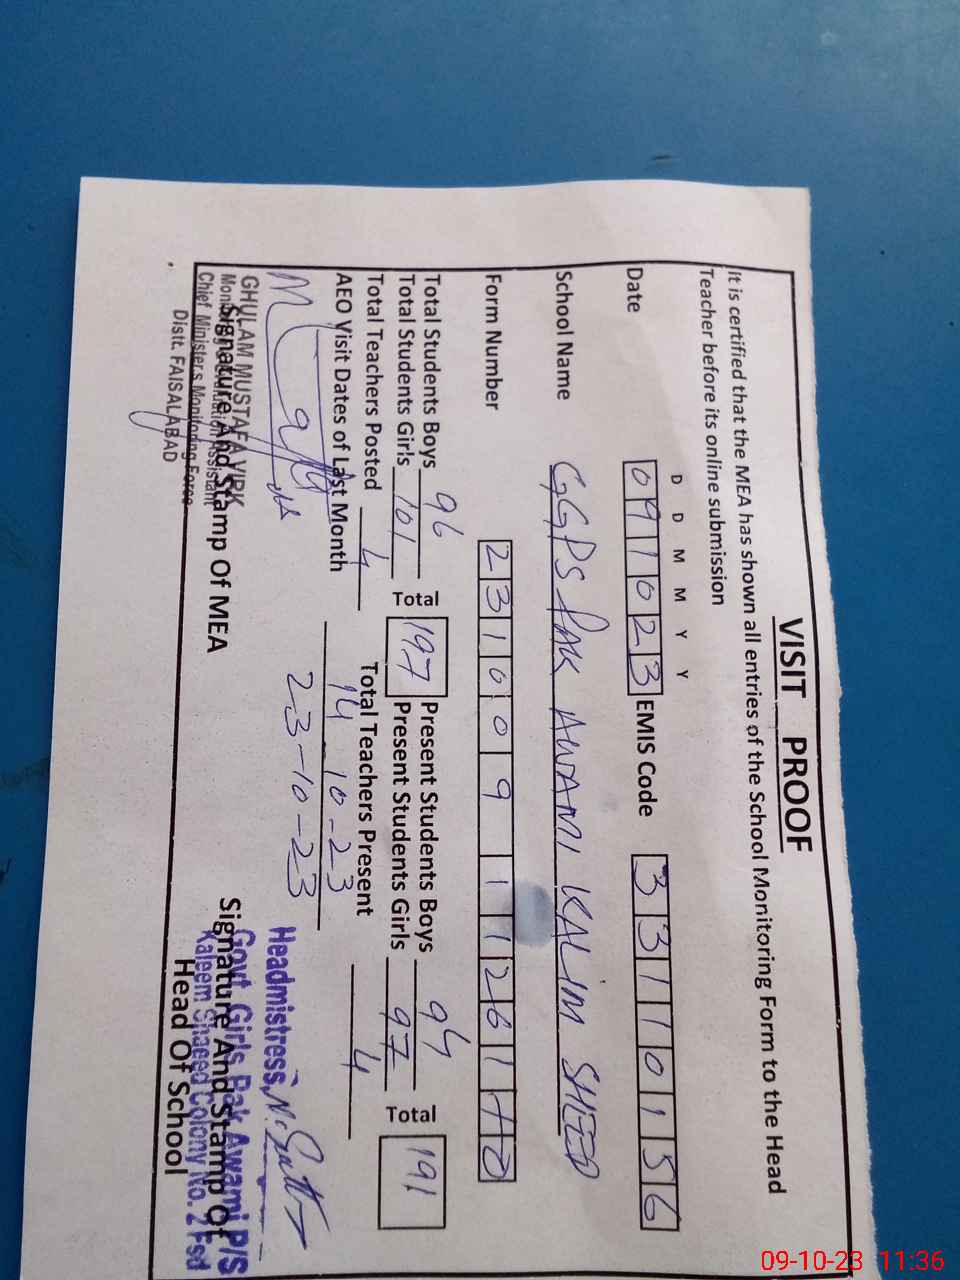 VISIT PROOF
It is certified that the MEA has shown all entries of the School Monitoring Form to the Head
Teacher before its online submission
D D M M Y Y
Date 091023 EMIS Code 33110156
School Name GGPS PAK AWAMI KALIM SHEED
Form Number 2310091126
Total Students Boys 96 Total 197 Present Students Boys 94 Total 191
Total Students Girls 101 Present Students Girls 97
Total Teachers Posted 4 Total Teachers Present 4
AEO Visit Dates of Last Month 14-10-23
23-10-23
GHULAM MUSTAFA VIRK
Monitoring & Evaluation Assistant
Chief Minister,s Monitoring Force
Distt. FAISALABAD
Signature And Stamp Of MEA
Headmistress,
Govt Girls Pak Awami P/S
Kaleem Shaeed Colony No. 2 Fsd
Signature And Stamp Of
Head Of School
09-10-23 11:36